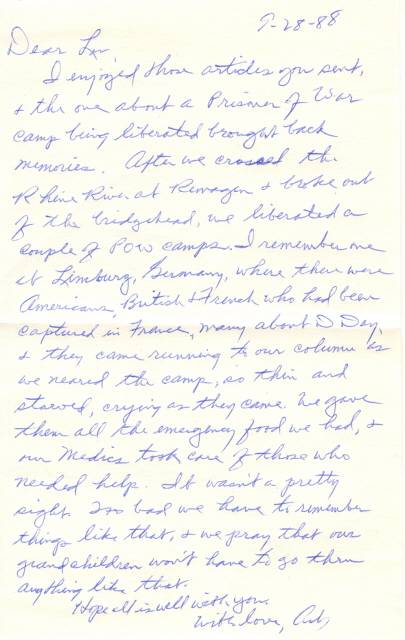 9-28-88
Dear
I enjoyed those articles you sent,
& the one about a Prisoner of War
camp being liberated brought back
memories. After we crossed the
Rhine River at Remagen & broke out
of the bridgehead, we liberated a
couple of POW camps. I remember one
at Limburg, Germany, where there were
Americans, British & French who had been
captured in France, many about D Day,
& they came running to our column as
we neared the camp, so thin and
starved, crying as they came. We gave
them all the emergency food we had, &
our Medics took care of those who
needed help. It wasn't a pretty
sight. Too bad we have to remember
things like that, & we pray that our
grandchildren won't have to go thru
anything like that.
Hope all is well with you.
With love, Art